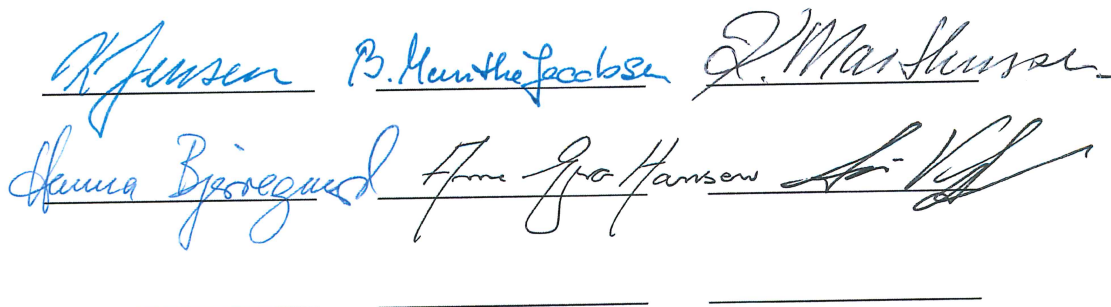 K Jensen B. Munthe Jacobsen K. Marthinsen
Hanna Bjørregaard Anne Gro Hansen